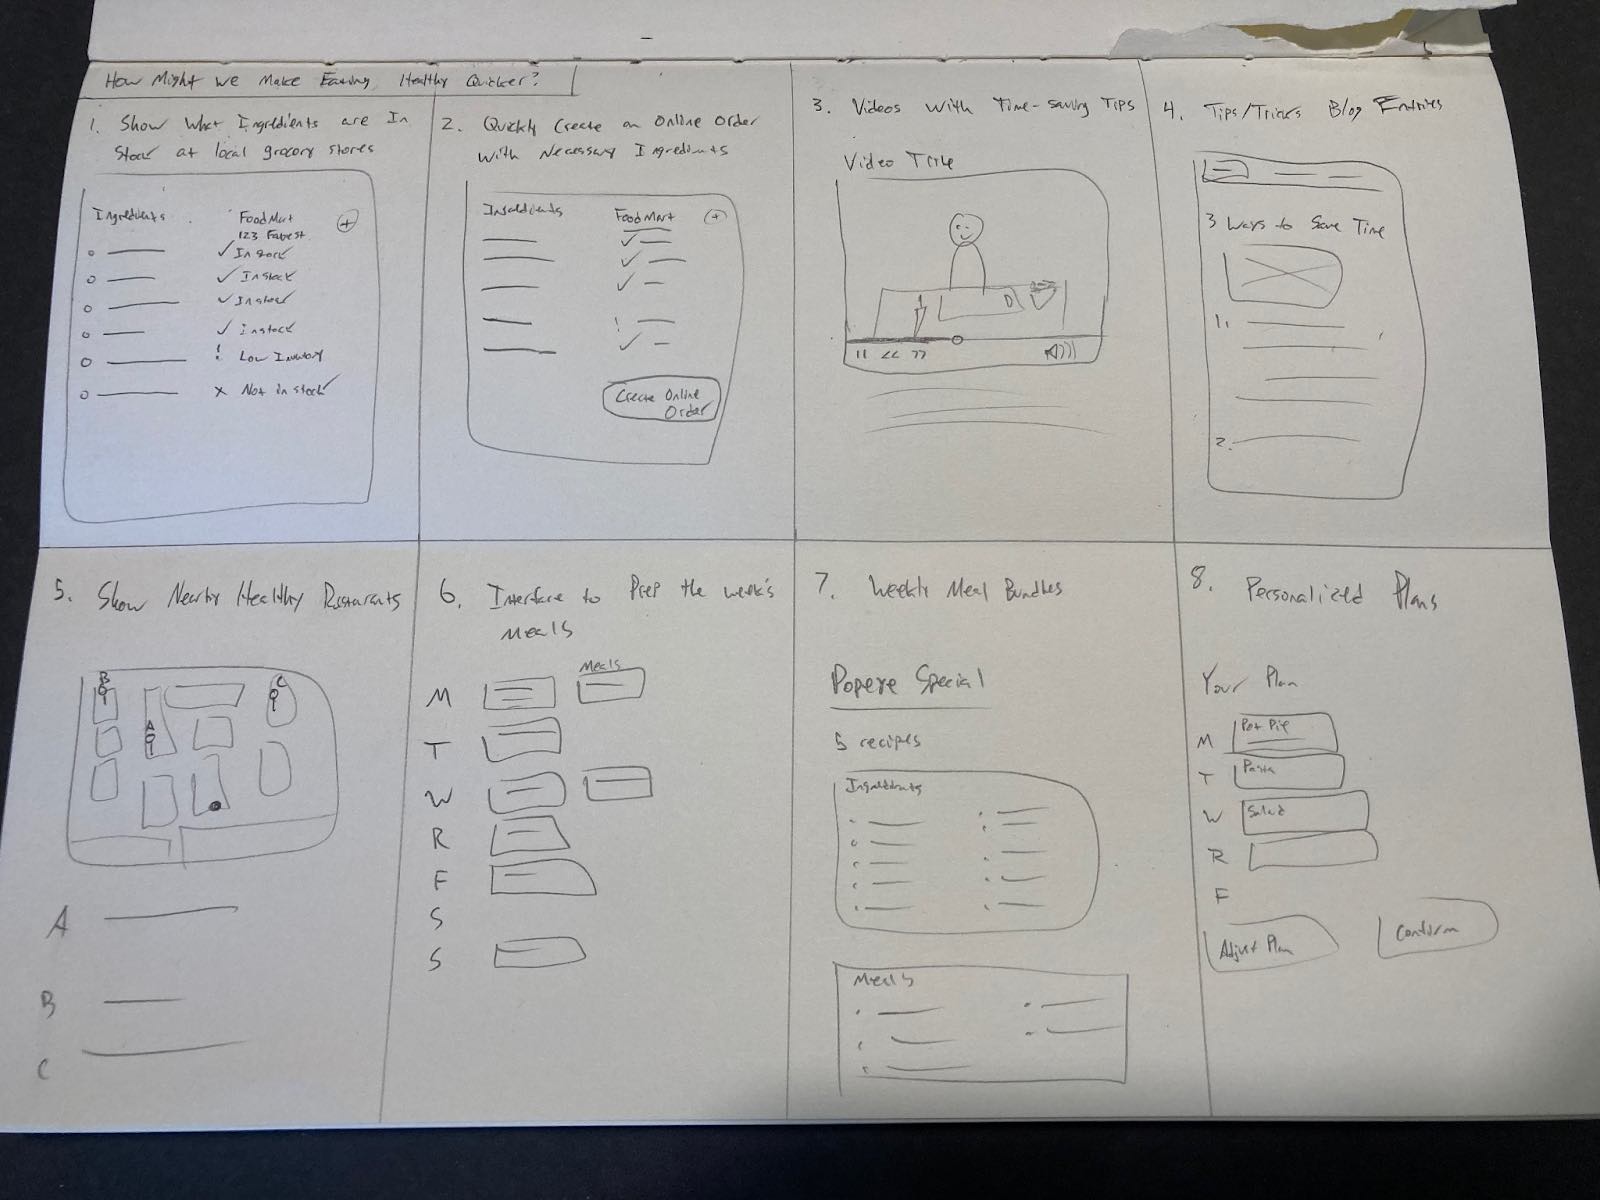 How Might We Make Eating Healthy Quicker?
1. Show What Ingredients are In
Stock at local grocery stores
Ingredients
FoodMart
123 Fake st.
✓ In stock
✓ In stock
✓ In stock
✓ in stock
! Low Inventory
x Not in stock
2. Quickly Create an Online Order
With Necessary Ingredients
Ingredients
FoodMart
Create Online
Order
3. Videos With Time-saving Tips
Video Title
4. Tips/Tricks Blog Entries
3 Ways to Save Time
1.
2.
5. Show Nearby Healthy Restaurants
B
C
A
A
B
C
6. Interface to Prep the week's
Meals
Meals
M
T
W
R
F
S
S
7. Weekly Meal Bundles
Popeye Special
5 recipes
Ingredients
Meals
8. Personalized Plans
Your Plan
M Pot Pie
T Pasta
W Salad
R
F
Adjust Plan
Confirm